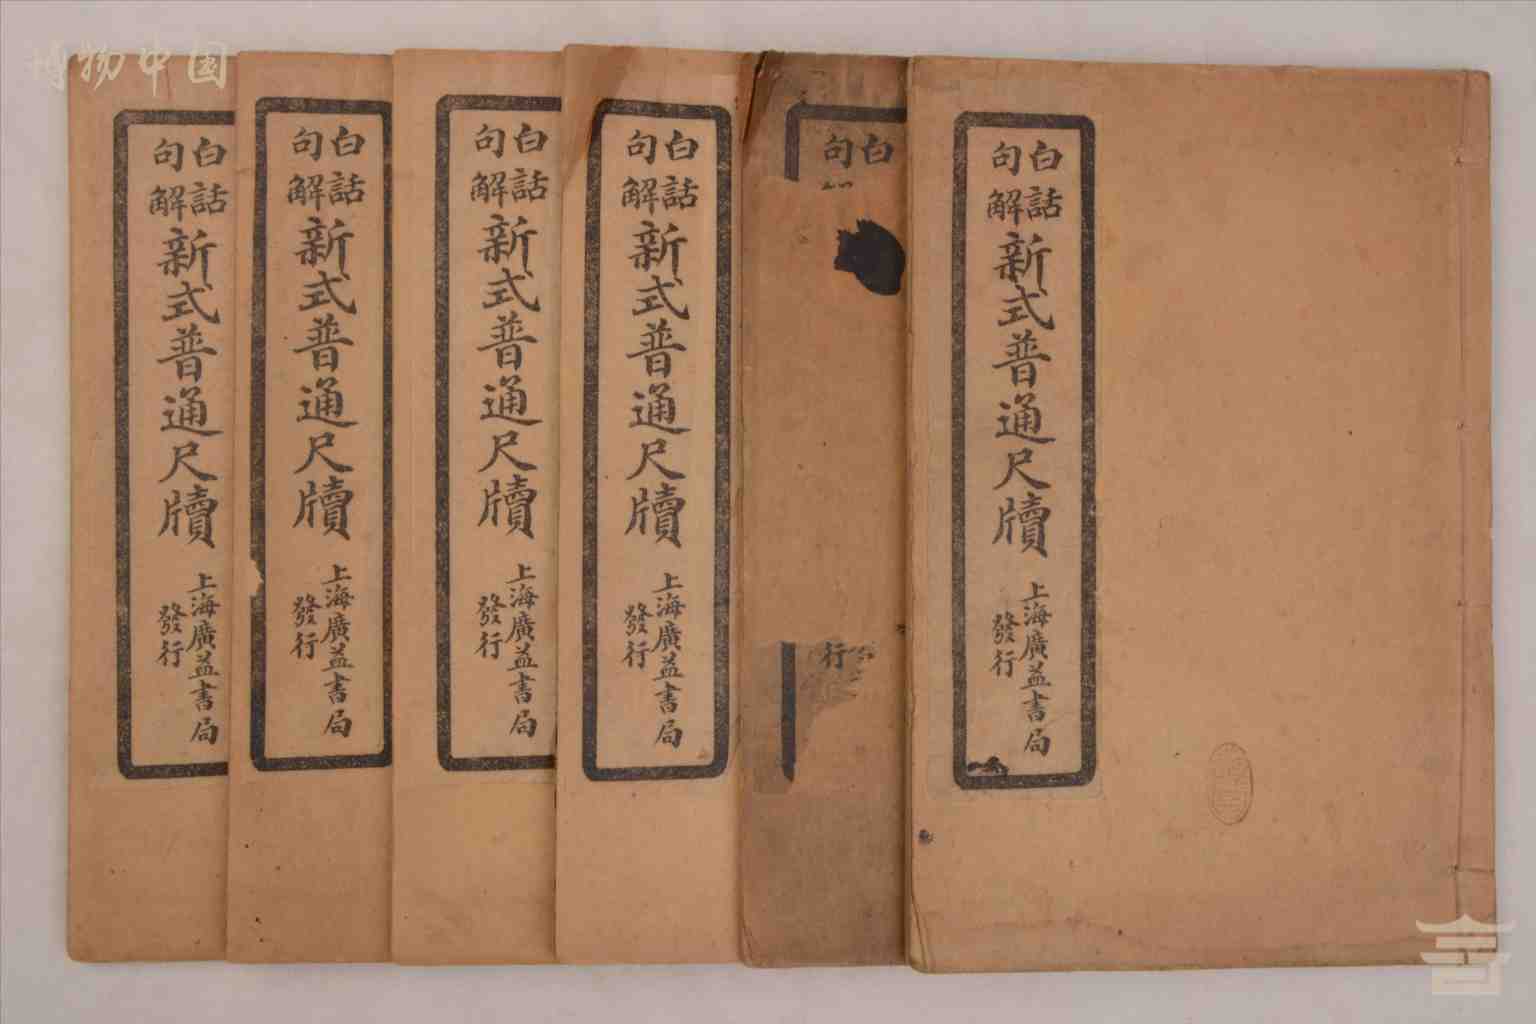 博物中国
白話
句解
新式普通尺牘
上海廣益書局
發行
白
句
行
白話
句解
新式普通尺牘
上海廣益書局
發行
白話
句解
新式普通尺牘
上海廣益書局
發行
白話
句解
新式普通尺牘
上海廣益書局
發行
白話
句解
新式普通尺牘
上海廣益書局
發行